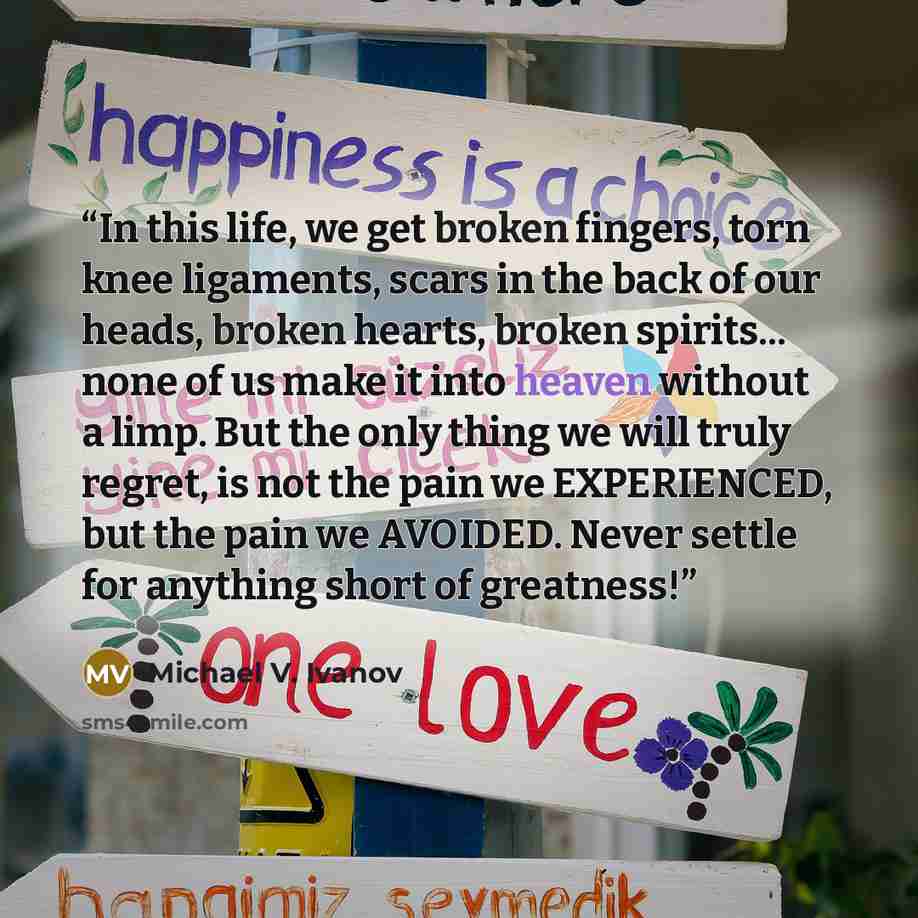 happiness is a choice
“In this life, we get broken fingers, torn
knee ligaments, scars in the back of our
heads, broken hearts, broken spirits...
none of us make it into heaven without
a limp. But the only thing we will truly
regret, is not the pain we EXPERIENCED,
but the pain we AVOIDED. Never settle
for anything short of greatness!”
yine mi güzeliz
yine mi çiçek
one love
MV Michael V. Ivanov
hangimiz sevmedik